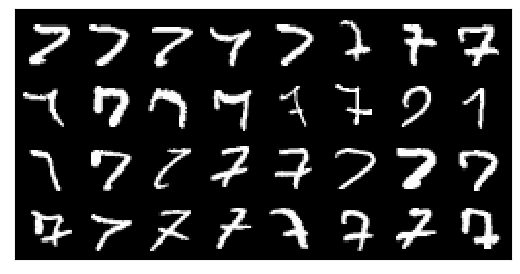 7 7 7 7 7 7
7 7 7 7 7 7 1
7 7 7 7 7 7 7
7 7 7 7 7 7 7 7